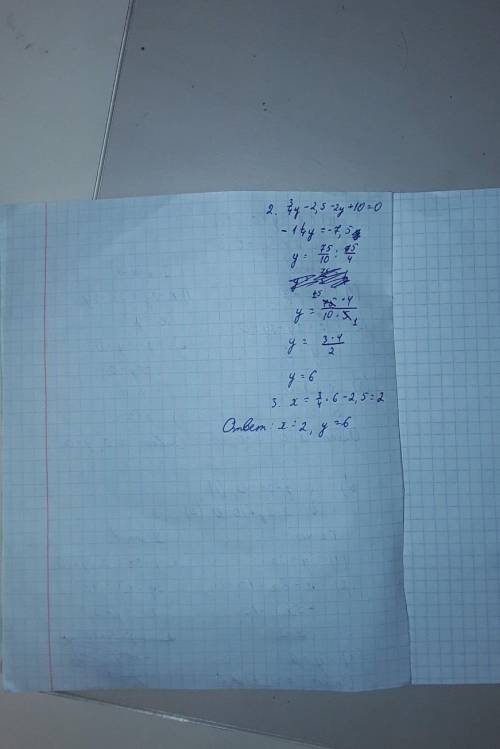 2. 3/4y - 2,5 - 2y + 10 = 0
- 1 1/4y = -7,5
y = 75/10 : 5/4
y = 15 75 · 4 / 10 · 5 1
y = 3·4/2
y = 6
3. x = 3/4 · 6 - 2,5 = 2
Ответ: x = 2, y = 6